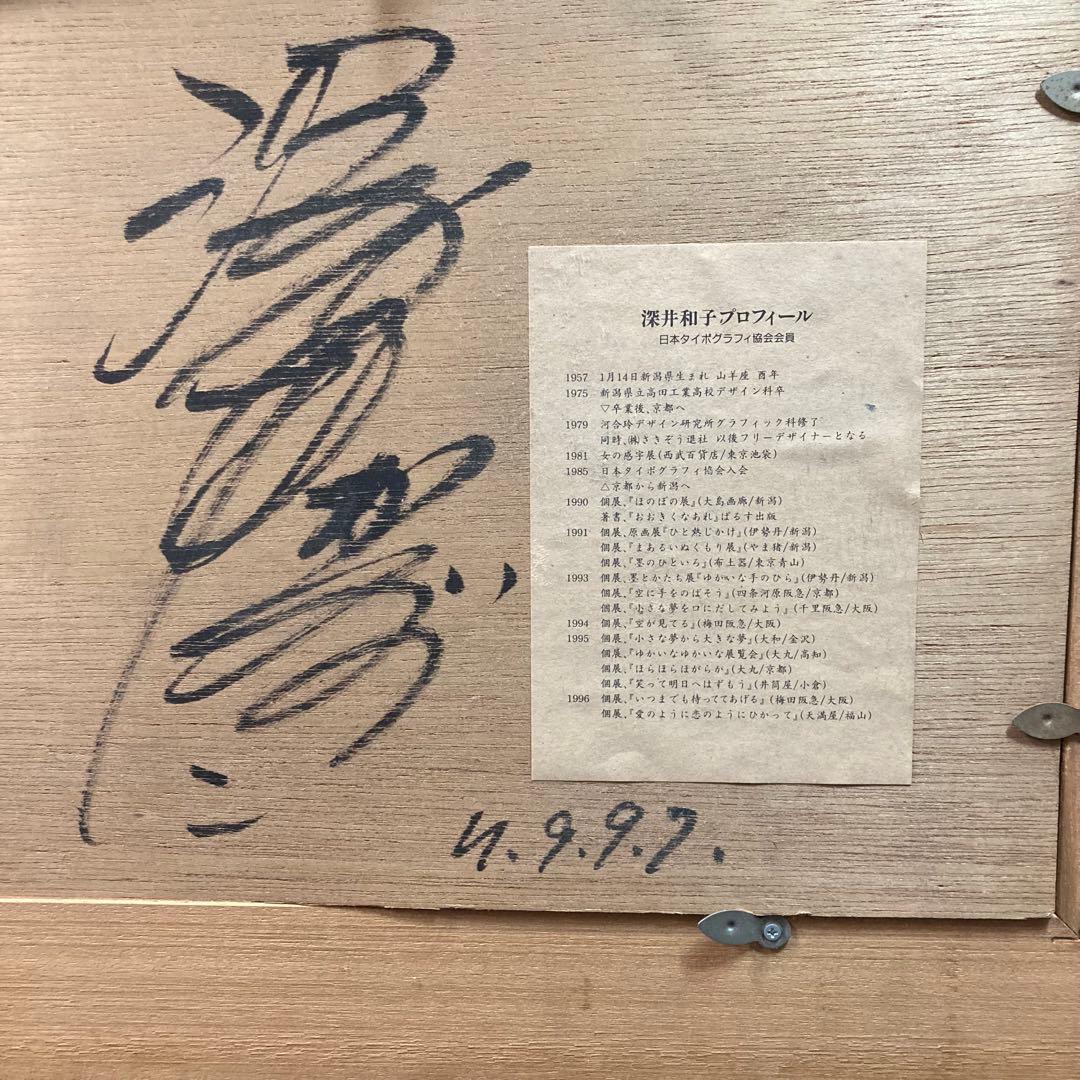 深井和子プロフィール
日本タイポグラフィ協会会員
1957 1月14日新潟県生まれ 山羊座 酉年
1975 新潟県立高田工業高校デザイン科卒
▽卒業後、京都へ
1979 河合玲デザイン研究所グラフィック科修了
同時、㈱さきぞう退社 以後フリーデザイナーとなる
1981 女の感字展(西武百貨店/東京池袋)
1985 日本タイポグラフィ協会入会
△京都から新潟へ
1990 個展、『ほのぼの展』(大島画廊/新潟)
著書、『おおきくなあれ』ぱるす出版
1991 個展、原画展『ひと熱じかけ』(伊勢丹/新潟)
個展、『まあるいぬくもり展』(やま猪/新潟)
個展、『墨のひといろ』(布土器/東京青山)
1993 個展、墨とかたち展『ゆかいな手のひら』(伊勢丹/新潟)
個展、『空に手をのばそう』(四条河原阪急/京都)
個展、『小さな夢を口にだしてみよう』(千里阪急/大阪)
1994 個展、『空が見てる』(梅田阪急/大阪)
1995 個展、『小さな夢から大きな夢』(大和/金沢)
個展、『ゆかいなゆかいな展覧会』(大丸/高知)
個展、『ほらほらほがらか』(大丸/京都)
個展、『笑って明日へはずもう』(井筒屋/小倉)
1996 個展、『いつまでも待っててあげる』(梅田阪急/大阪)
個展、『愛のように恋のようにひかって』(天満屋/福山)
9.9.7.